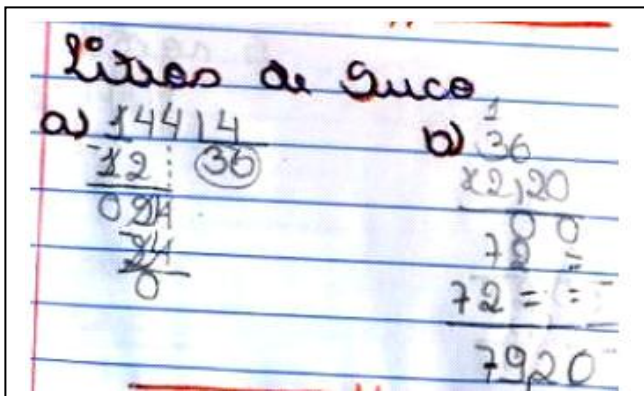 Litros de Suco
a) 144 | 4
-12 36
024
-24
0
b) 1
36
x2,20
00
72=
72==
79,20